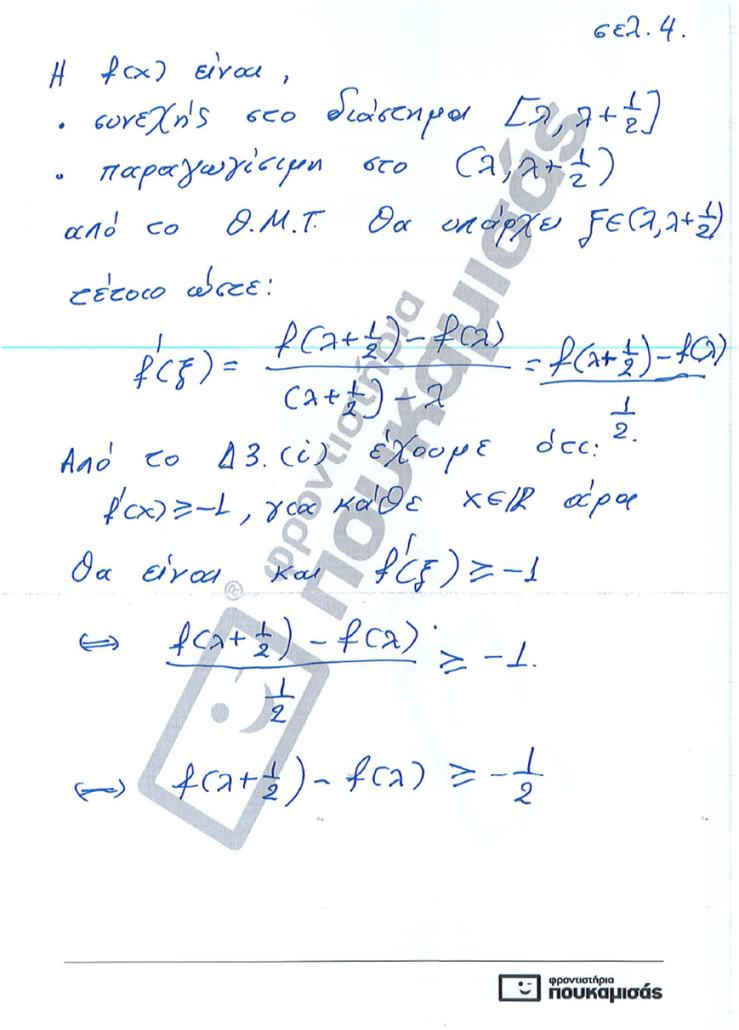 σελ. 4.
Η f(x) είναι,
• συνεχής στο διάστημα [λ, λ+1/2]
• παραγωγίσιμη στο (λ, λ+1/2)
από το Θ.Μ.Τ. θα υπάρχει ξ∈(λ, λ+1/2)
τέτοιο ώστε:
f'(ξ) = (f(λ+1/2) - f(λ)) / ((λ+1/2) - λ) = (f(λ+1/2) - f(λ)) / (1/2).
Από το Δ3.(i) έχουμε ότι:
f'(x) ≥ -1, για κάθε x∈ℝ άρα
θα είναι και f'(ξ) ≥ -1
⇔ (f(λ+1/2) - f(λ)) / (1/2) ≥ -1.
⇔ f(λ+1/2) - f(λ) ≥ -1/2
φροντιστήρια
πουκαμισάς
®
φροντιστήρια
πουκαμισάς